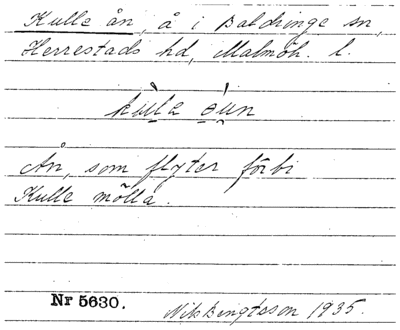 Kulle ån, å i Baldringe sn,
Herrestads hd, Malmöh. l.
Ån, som flyter förbi
Kulle mölla.
Nr 5630.
Nils Bengtsson 1935.